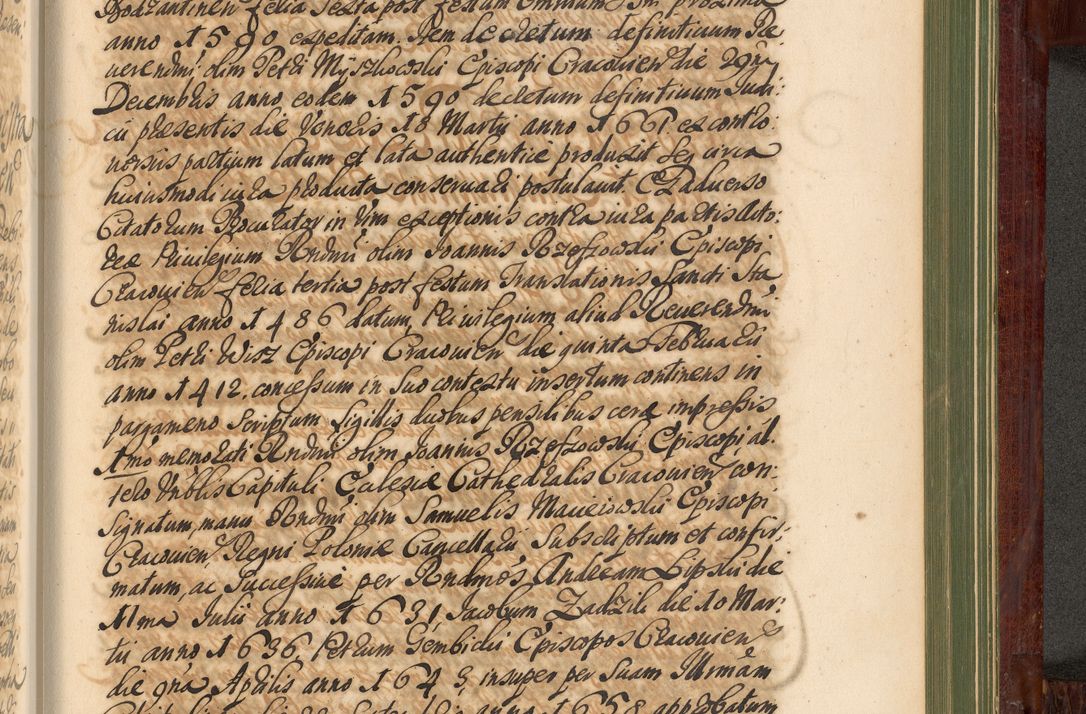 Bodzantinen feria Sexta post festum Omnium SSm. proxima
anno 1590 expeditam. Item decretum definitiuum Re:
uerendmi olim Petri Myszkowski Episcopi Cracouien die 29na
Decembris anno eodem 1590 decretum definitiuum Judi:
cii praesentis die Veneris 18 Martii anno 1661. ex contro:
uersiis partium latum et lata authentice produxit seq circa
huiusmodi iura producta conseruari postulauit. E aduerso
Citatorum Procurator in vim exceptionis contra iura partis Acto:
reae Priuilegium Rndmi olim Joannis Rzeszowski Episcopi
Cracouien feria tertia post festum Translationis Sancti Sta
nislai anno 1486 datum, Priuilegium aliud Reuerendmi
olim Petri Wisz Episcopi Cracouien die quinta Februarii
anno 1412. concessum in suo contextu insertum continens in
pargameno scriptum sigillis duobus pensilibus cera impressis
1mo memorati Rndmi olim Joannis Rzeszowski Episcopi al:
tero Vnblis Capituli Eclesiae Cathedralis Cracouien con:
signatum, manu Rndmi olim Samuelis Macieiowski Episcopi
Cracouien, Regni Poloniae Cancellarii subscriptum et confir:
matum, ac successiue per Rndmos Andream Lipski die
11ma Julii anno 1631, Jacobum Zadzik die 10 Mar:
tii anno 1636, Petrum Gembicki Episcopos Cracouien
die 9na Aprilis anno 1645, insuper per suam Illrmam
anno 1658 approbatum